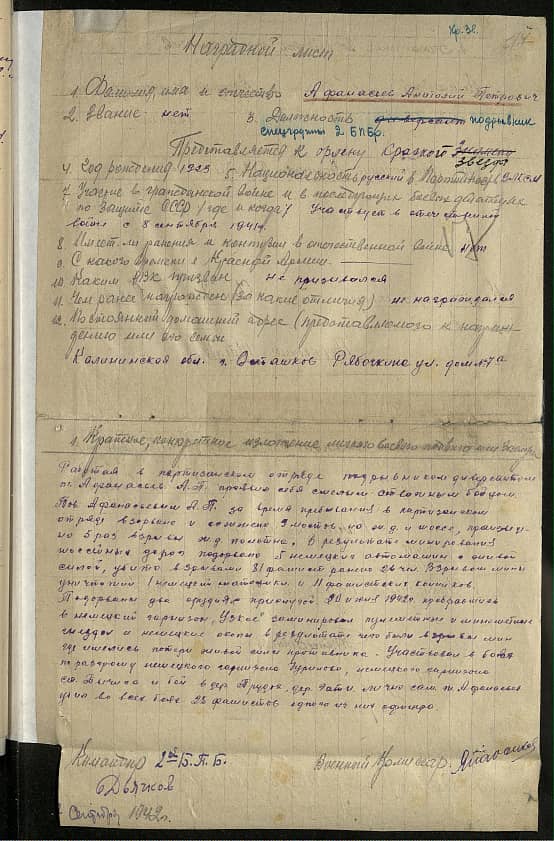 Кр. Зв.
Наградной лист
1. Фамилия, имя и отчество Афанасьев Анатолий Петрович
2. Звание нет 3. Должность подрывник
спецгруппы 2 БПБр.
Представляется к ордену Красной
Звезды
4. Год рождения 1923 5. Национальность русский 6. Партийность ВЛКСМ
7. Участие в гражданской войне и в последующих боевых действиях
по защите СССР /где и когда/ Участвует в отечественной
войне с 8 сентября 1941
8. Имеет ли ранения и контузии в отечественной войне нет
9. С какого времени в Красной Армии
10. Каким РВК призван не призывался
11. Чем ранее награжден (за какие отличия) не награждался
12. Постоянный домашний адрес (представляемого к награж-
дению или его семьи
Калининская обл. г. Осташков Рябочкина ул. дом
1. Краткое, конкретное изложение личного боевого подвига или заслуг
Работая в партизанском отряде подрывником диверсантом
т. Афанасьев А.П. проявил себя смелым бойцом.
Тов Афанасьевым А.П. за время пребывания в партизанском
отряде взорвано и сожжено 9 мостов на ж.д. и шоссе, произведе-
но 5 раз взрыв ж.д. полотна. В результате минирования
шоссейных дорог подорвано 5 немецких автомашин с живой
силой, убито взрывами 31 фашист ранено 26 чел. Взрывом мины
уничтожил 1 немецкий и 11 фашистских конников.
Подорваны два орудия 20 июня 1942г. пробравшись
в немецкий гарнизон заминировал пулеметные и минометные
гнезда и немецкие окопы в результате чего были взрывы мин
где имелись потери живой силы противника. Участвовал в боях
по разгрому немецкого гарнизона немецкого гарнизона
и бой в дер. дер. лично сам т. Афанасьев
убил во всех боях 25 фашистов одного из них офицера.
Командир 2ой Б.П.Б. Военный Комиссар
Дьячков
Сентябрь 1942г.